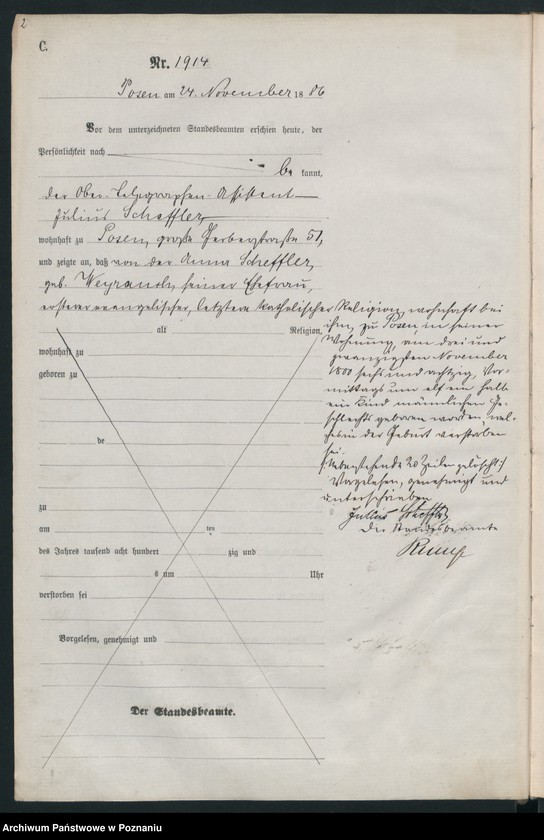 2
C.
Nr. 1914
Posen am 24. November 18 86
Vor dem unterzeichneten Standesbeamten erschien heute, der
Persönlichkeit nach
be kannt,
der Ober-Telegraphen-Assistent
Julius Scheffler,
wohnhaft zu Posen, große Gerberstraße 51,
und zeigte an, daß von der Anna Scheffler,
geb. Weyrauch, seiner Ehefrau,
ersterer evangelischer, letztere katholischer Religion, wohnhaft bei
ihm zu Posen, in seiner
Wohnung, am drei und
zwanzigsten November
1800 sechs und achtzig, Vor-
mittags um elf ein halb
ein Kind männlichen Ge-
schlechts geboren worden, wel-
ches in der Geburt verstorben
sei.
(: Nebenstehende 20 Zeilen gelöscht :)
Vorgelesen, genehmigt und
unterschrieben
Julius Scheffler
Der Standesbeamte
alt Religion,
wohnhaft zu
geboren zu
de
zu
am ten
des Jahres tausend acht hundert zig und
s um Uhr
verstorben sei
Vorgelesen, genehmigt und
Der Standesbeamte.
Archiwum Państwowe w Poznaniu